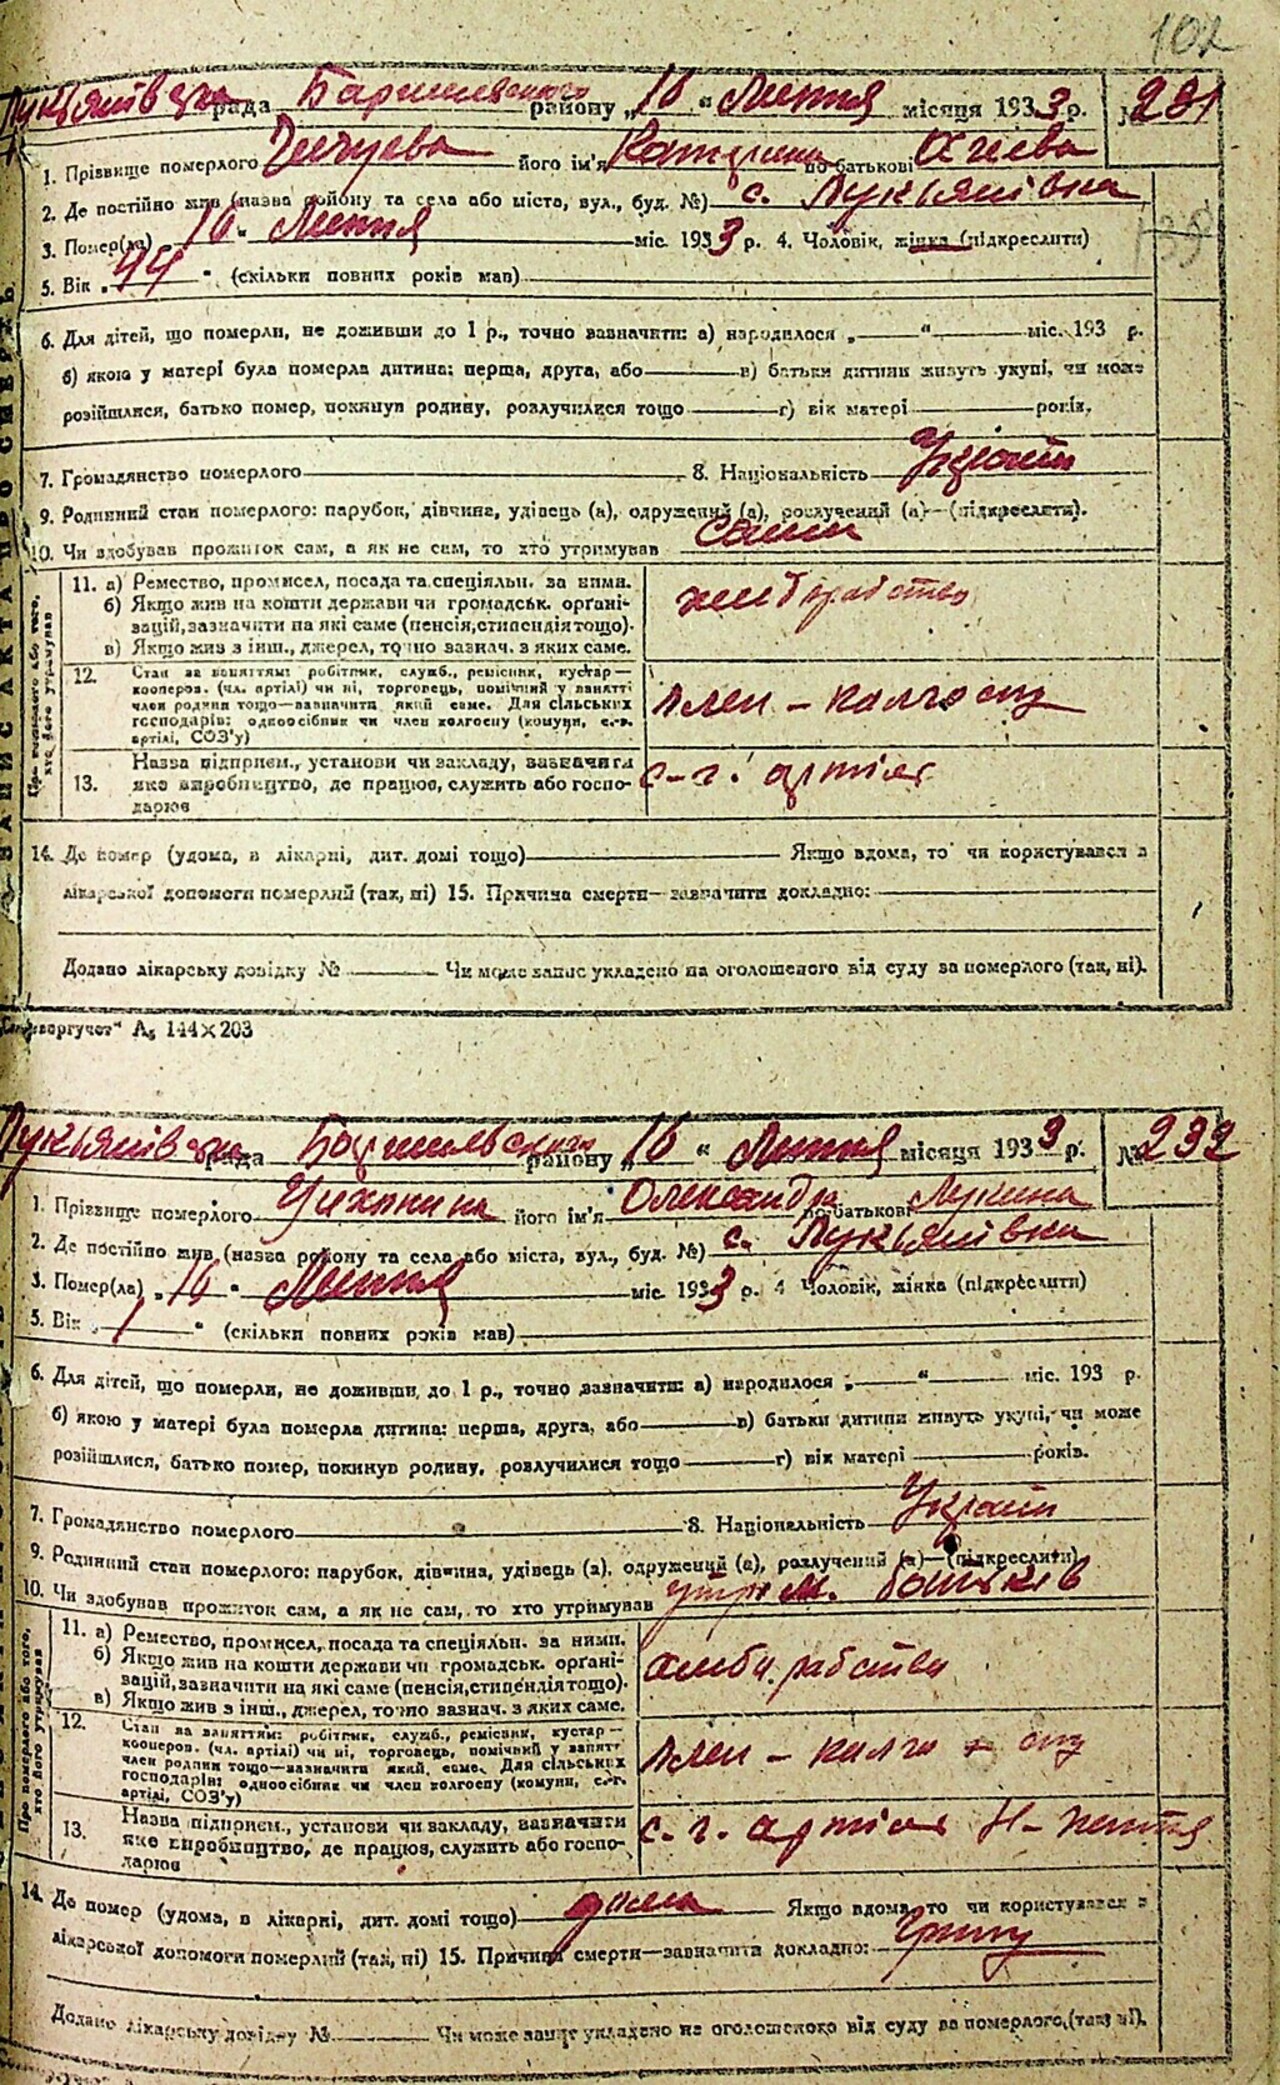 102
Лукьянівська рада Баришевського району „16“ Липня місяця 1933 р. № 231
1. Прізвище померлого його ім'я Катерина по батькові
2. Де постійно жив (назва району та села або міста, вул., буд. №) с. Лукьянівка
3. Помер(ла) „16“ Липня міс. 1933 р. 4. Чоловік, жінка (підкреслити)
5. Вік „44“ (скільки повних років мав)
6. Для дітей, що померли, не доживши до 1 р., точно зазначити: а) народилося „ “ міс. 193 р.
б) якою у матері була померла дитина: перша, друга, або в) батьки дитини живуть укупі, чи може
розійшлися, батько помер, покинув родину, розлучилися тощо г) вік матері років.
7. Громадянство померлого 8. Національність Україн
9. Родинний стан померлого: парубок, дівчина, удівець (а), одружений (а), розлучений (а)—(підкреслити).
10. Чи здобував прожиток сам, а як не сам, то хто утримував сами
11. а) Ремество, промисел, посада та спеціяльн. за ними.
б) Якщо жив на кошти держави чи громадськ. органі-
зацій, зазначити на які саме (пенсія, стипендія тощо).
в) Якщо жив з інш., джерел, точно зазнач. з яких саме.
12. Стан за заняттям: робітник, служб., ремісник, кустар—
кооперов. (чл. артілі) чи ні, торговець, помічний у занятті
член родини тощо—зазначити який саме. Для сільських
господарів: одноосібник чи член колгоспу (комуни, с.-г.
артілі, СОЗ'у)
член - колгоспу
13. Назва підприєм., установи чи закладу, зазначити
яке виробництво, де працює, служить або госпо-
дарює
с-г. артіль
14. Де помер (удома, в лікарні, дит. домі тощо) Якщо вдома, то чи користувався з
лікарської допомоги померлий (так, ні) 15. Причина смерти—зазначити докладно:
Додано лікарську довідку № Чи може запис укладено на оголошеного від суду за померлого (так, ні).
А5 144×203
Лукьянівська рада Баришевського району „16“ Липня місяця 1933 р. № 232
1. Прізвище померлого його ім'я Олександра по батькові Лукина
2. Де постійно жив (назва району та села або міста, вул., буд. №) с. Лукьянівка
3. Помер(ла) „16“ Липня міс. 1933 р. 4 Чоловік, жінка (підкреслити)
5. Вік „1“ (скільки повних років мав)
6. Для дітей, що померли, не доживши до 1 р., точно зазначити: а) народилося „ “ міс. 193 р.
б) якою у матері була померла дитина: перша, друга, або в) батьки дитини живуть укупі, чи може
розійшлися, батько помер, покинув родину, розлучилися тощо г) вік матері років.
7. Громадянство померлого 8. Національність Україн
9. Родинний стан померлого: парубок, дівчина, удівець (а), одружений (а), розлучений (а)—(підкреслити)
10. Чи здобував прожиток сам, а як не сам, то хто утримував утрим. батьків
11. а) Ремество, промисел, посада та спеціяльн. за ними.
б) Якщо жив на кошти держави чи громадськ. органі-
зацій, зазначити на які саме (пенсія, стипендія тощо).
в) Якщо жив з інш., джерел, точно зазнач. з яких саме.
12. Стан за заняттям: робітник, служб., ремісник, кустар—
кооперов. (чл. артілі) чи ні, торговець, помічний у занятт
член родини тощо—зазначити який саме. Для сільських
господарів: одноосібник чи член колгоспу (комуни, с.-г.
артілі, СОЗ'у)
член - колгоспу
13. Назва підприєм., установи чи закладу, зазначити
яке виробництво, де працює, служить або госпо-
дарює
с. г. артіль
14. Де помер (удома, в лікарні, дит. домі тощо) дома Якщо вдома, то чи користувався з
лікарської допомоги померлий (так, ні) 15. Причина смерти—зазначити докладно: Грипу
Додано лікарську довідку № Чи може запис укладено на оголошеного від суду за померлого (так, ні).